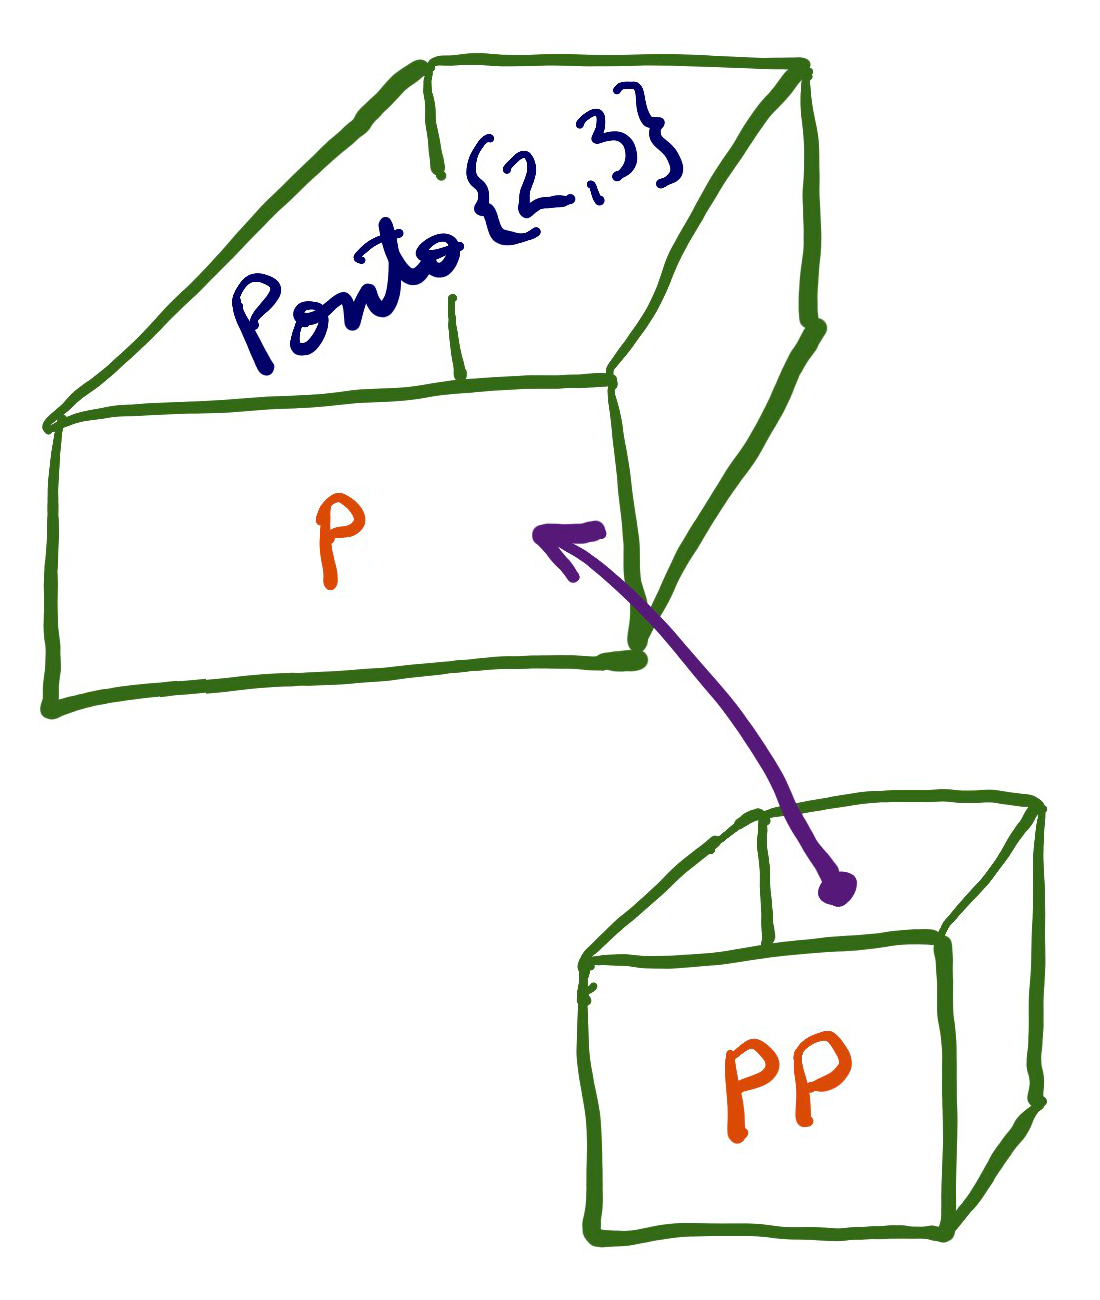 Ponto {2,3}
P
PP